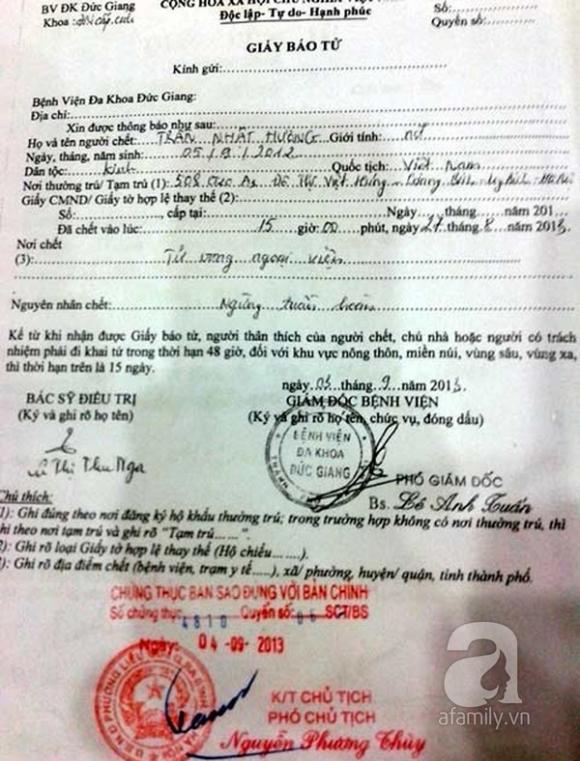 BV ĐK Đức Giang CỘNG HÒA XÃ HỘI CHỦ NGHĨA VIỆT Số:
Khoa: cấp cứu Độc lập- Tự do- Hạnh phúc Quyển số:
GIẤY BÁO TỬ
Kính gửi:
Bệnh Viện Đa Khoa Đức Giang:
Địa chỉ:
Xin được thông báo như sau:
Họ và tên người chết: TRẦN NHẬT HƯƠNG Giới tính: nữ
Ngày, tháng, năm sinh: 05/8/2012
Dân tộc: Kinh Quốc tịch: Việt Nam
Nơi thường trú/ Tạm trú (1): 508 Việt Hưng
Giấy CMND/ Giấy tờ hợp lệ thay thế (2):
Số: , cấp tại: Ngày tháng năm 201
Đã chết vào lúc: 15 giờ 00 phút, ngày 27 tháng 8 năm 2013
Nơi chết
(3): Tử vong ngoại viện
Nguyên nhân chết: Ngừng tuần hoàn
Kể từ khi nhận được Giấy báo tử, người thân thích của người chết, chủ nhà hoặc người có trách
nhiệm phải đi khai tử trong thời hạn 48 giờ, đối với khu vực nông thôn, miền núi, vùng sâu, vùng xa,
thì thời hạn trên là 15 ngày.
ngày 03 tháng 9 năm 2013
BÁC SỸ ĐIỀU TRỊ GIÁM ĐỐC BỆNH VIỆN
(Ký và ghi rõ họ tên) (Ký và ghi rõ họ tên, chức vụ, đóng dấu)
BỆNH VIỆN
ĐA KHOA
ĐỨC GIANG
PHÓ GIÁM ĐỐC
Thị Thu Nga
Bs. Lê Anh Tuấn
Chú thích:
1): Ghi đúng theo nơi đăng ký hộ khẩu thường trú; trong trường hợp không có nơi thường trú, thì
hi theo nơi tạm trú và ghi rõ "Tạm trú.......".
2): Ghi rõ loại Giấy tờ hợp lệ thay thế (Hộ chiếu.......).
3): Ghi rõ địa điểm chết (bệnh viện, trạm y tế.....), xã/ phường, huyện/ quận, tỉnh thành phố.
CHỨNG THỰC BẢN SAO ĐÚNG VỚI BẢN CHÍNH
Số chứng thực: 4810 Quyển số: 05 SCT/BS
Ngày: 04 -09- 2013
K/T CHỦ TỊCH
PHÓ CHỦ TỊCH
Nguyễn Phương Thùy
afamily.vn